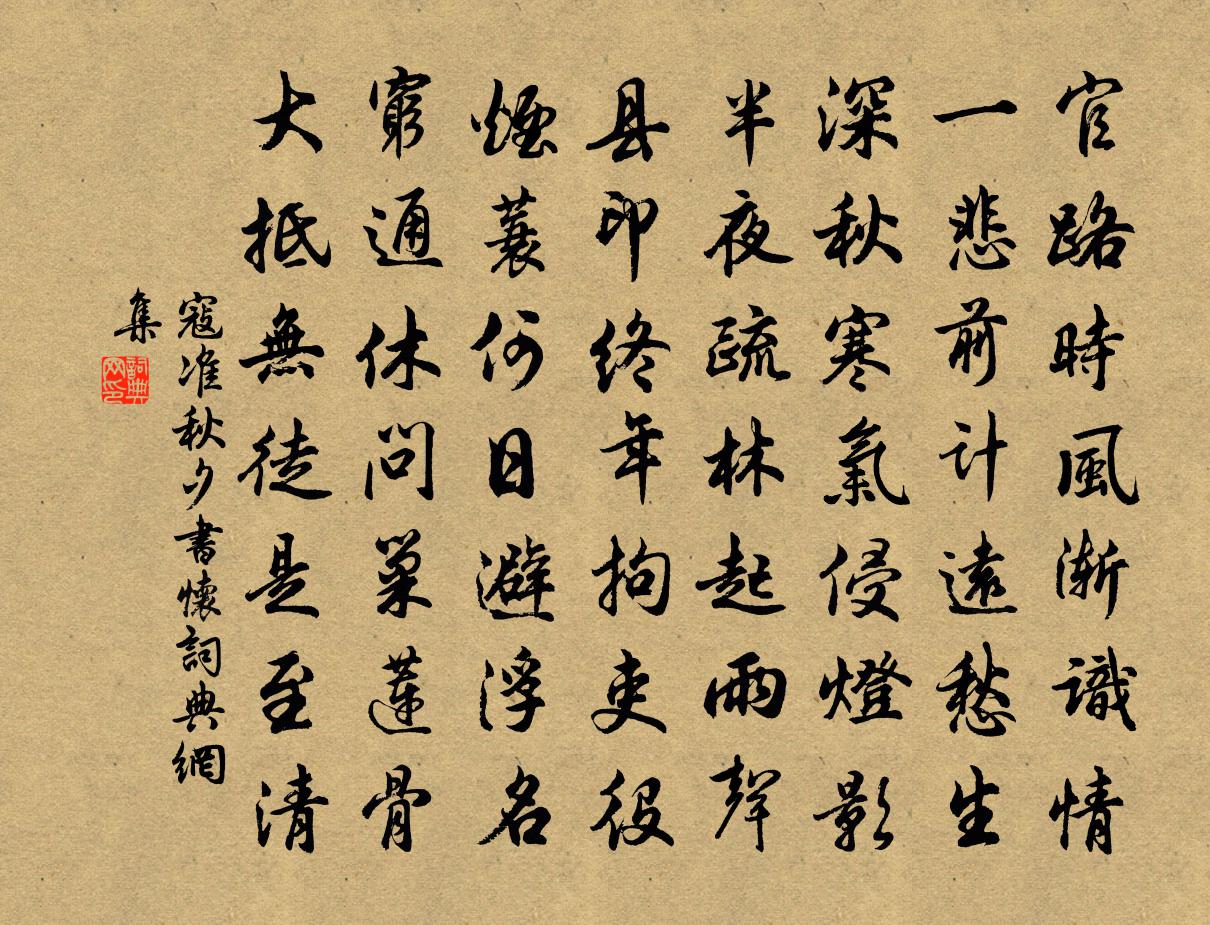 官路時風漸識情
一悲前計遠愁生
深秋寒氣侵燈影
半夜疏林起雨聲
县印終年拘吏役
煙蓑何日避浮名
窮通休問巢蓮骨
大抵無徒是至清
寇准秋夕書懷詞典網
集
詞典
网印